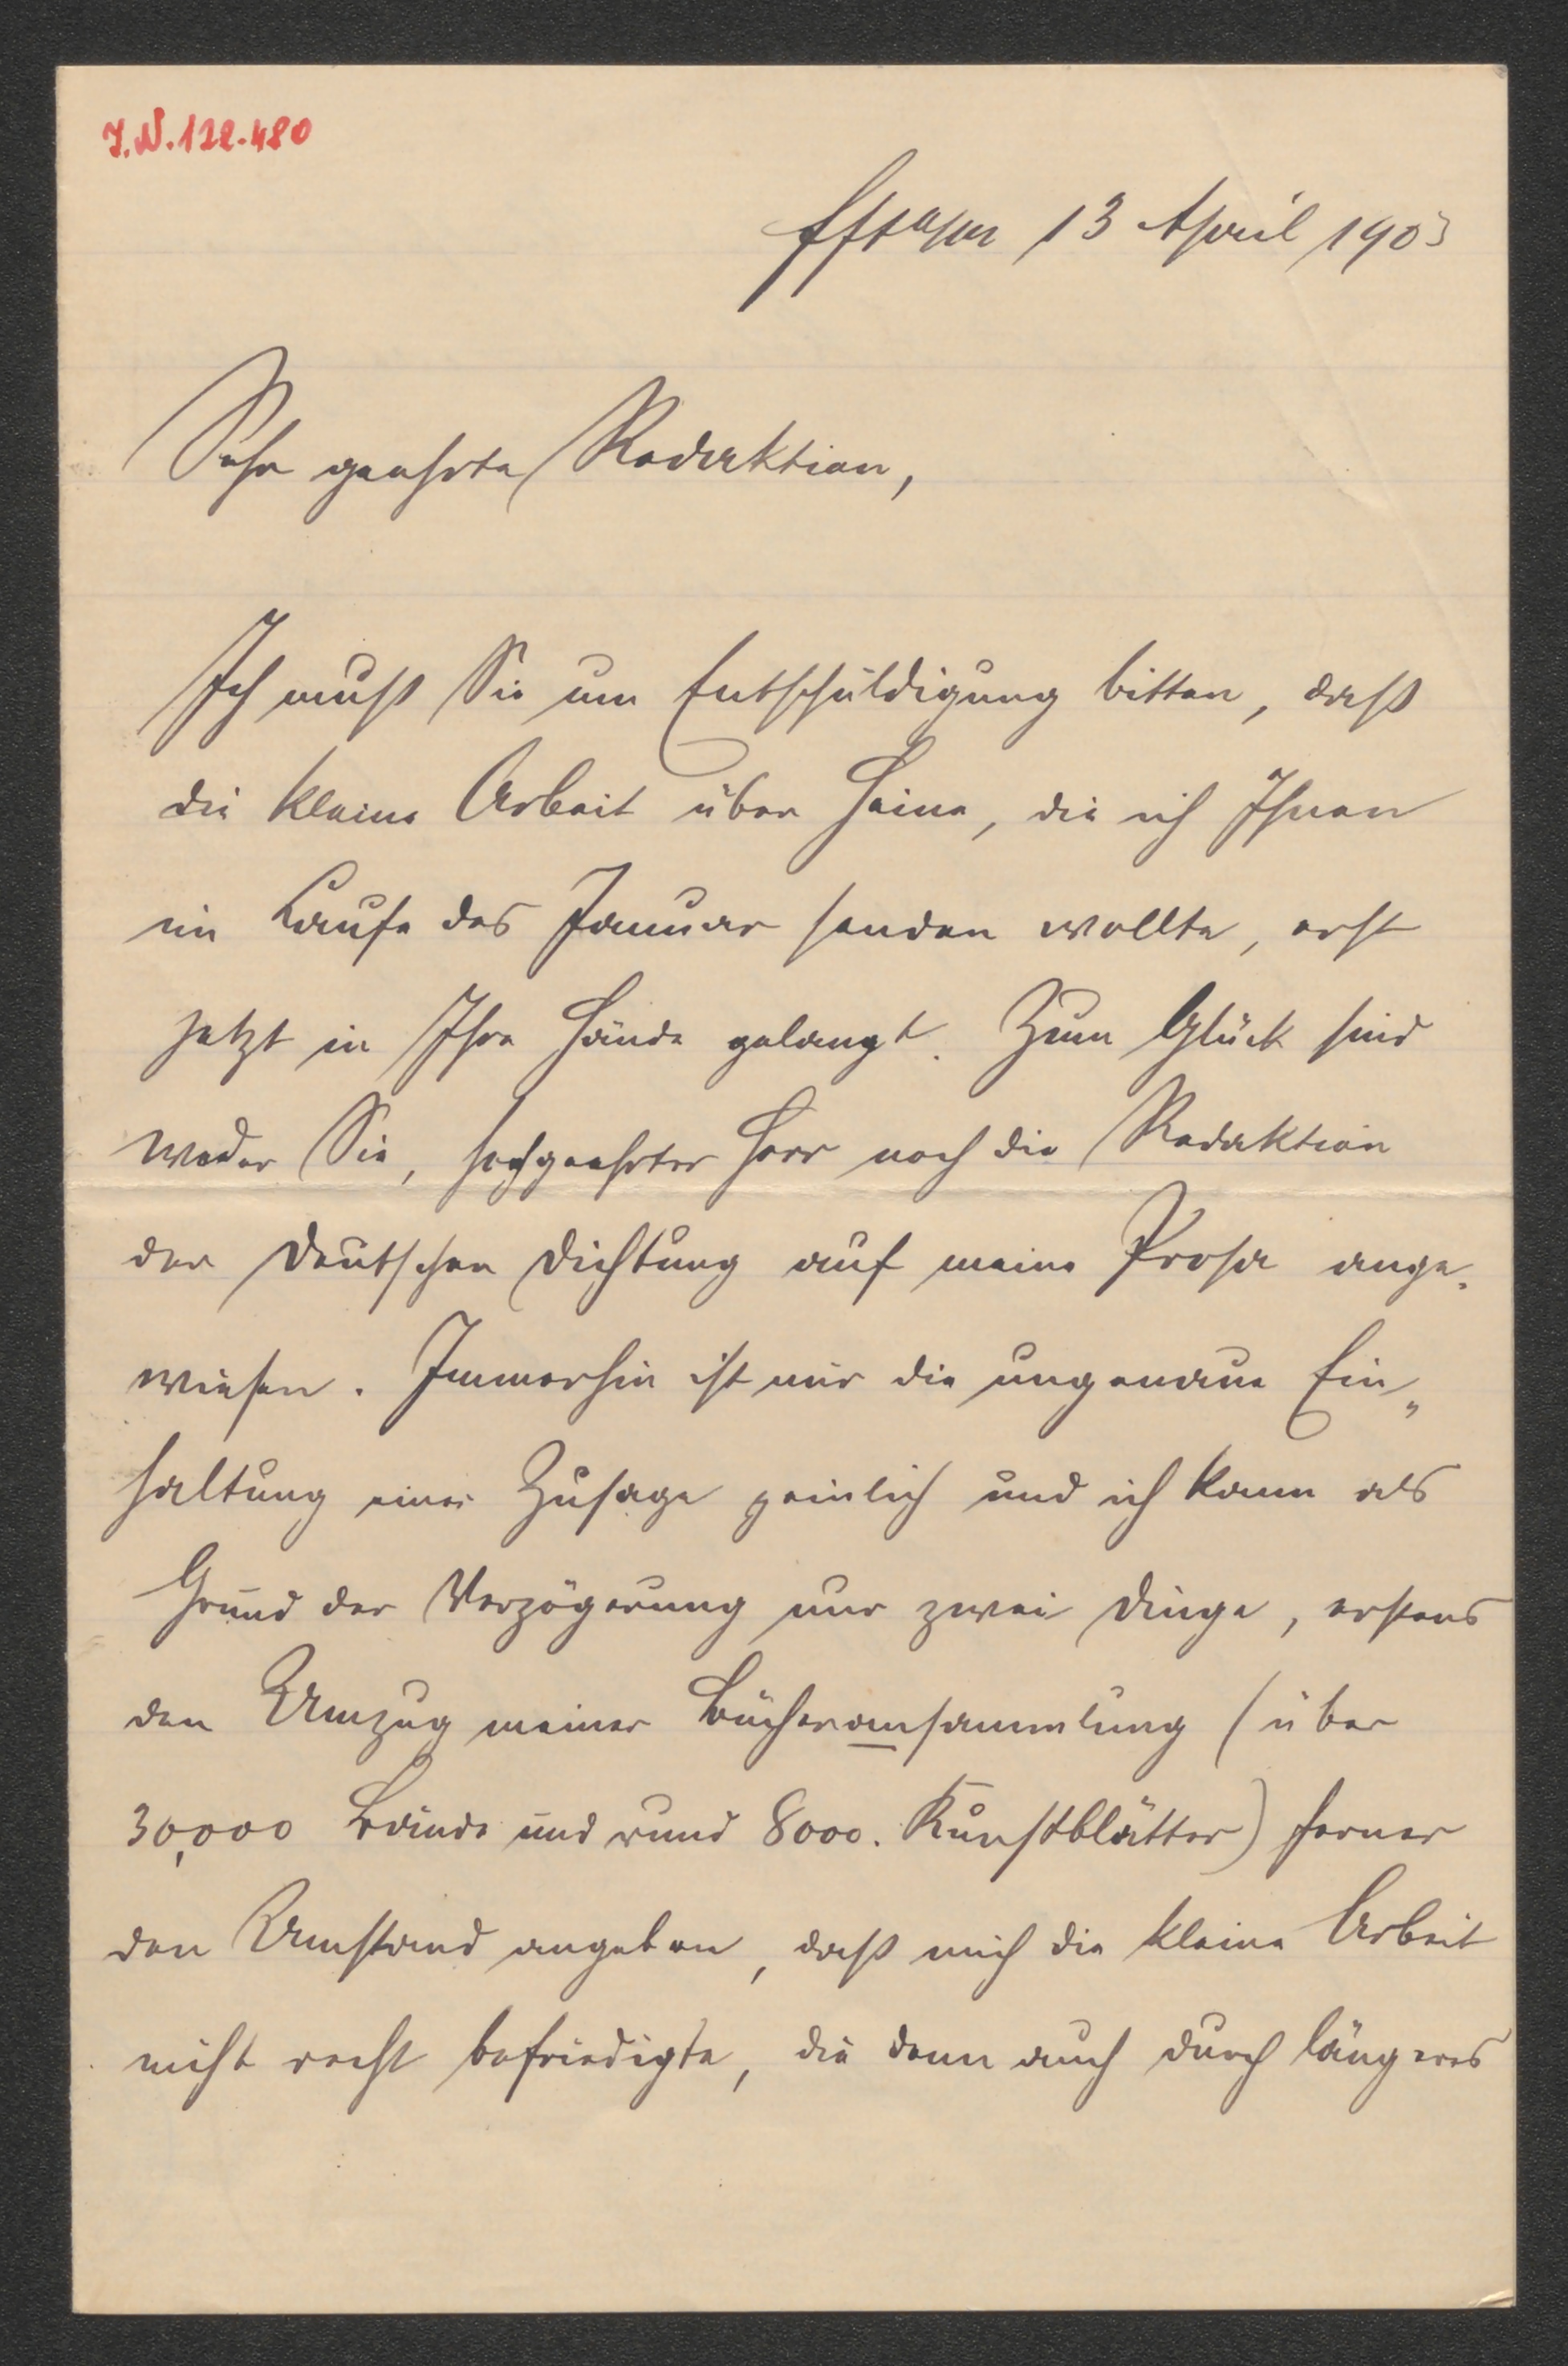 J.N. 122.480
13 April 1903
Sehr geehrte Redaktion,
Ich muß Sie um Entschuldigung bitten, daß
die kleine Arbeit über Heine, die ich Ihnen
im Laufe des Januar senden wollte, erst
jetzt in Ihre Hände gelangt. Zum Glück sind
weder Sie, hochgeehrter Herr noch die Redaktion
der Deutschen Dichtung auf meine Prosa ange-
wiesen. Immerhin ist mir die ungenaue Ein„
haltung einer Zusage peinlich und ich kann als
Grund der Verzögerung nur zwei Dinge, erstens
den Umzug meiner Bücheransammlung (über
30,000 Bände und rund 8000. Kunstblätter) ferner
den Umstand angeben, daß mich die kleine Arbeit
nicht recht befriedigte, die denn auch durch längeres